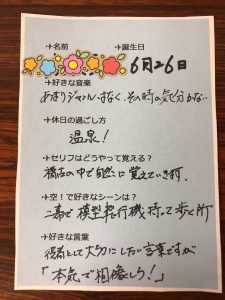 ✈名前 ✈誕生日
6月26日
✈好きな音楽
あまりジャンルはなく、その時の気分かな…
✈休日の過ごし方
温泉!
✈セリフはどうやって覚える?
稽古の中で自然に覚えていきます。
✈空!で好きなシーンは?
二幕で模型飛行機持って歩く所
✈好きな言葉
役者として大切にしたい言葉ですが
「本気で想像しろ!」